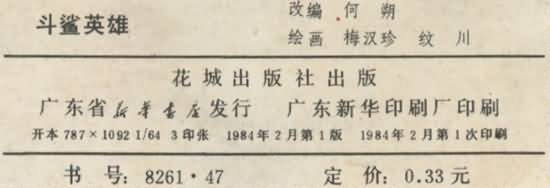 斗鲨英雄
改编 何朔
绘画 梅汉珍 纹川
花城出版社出版
广东省新华书店发行 广东新华印刷厂印刷
开本 787×1092 1/64 3印张 1984年2月第1版 1984年2月第1次印刷
书号: 8261·47 定价: 0.33元